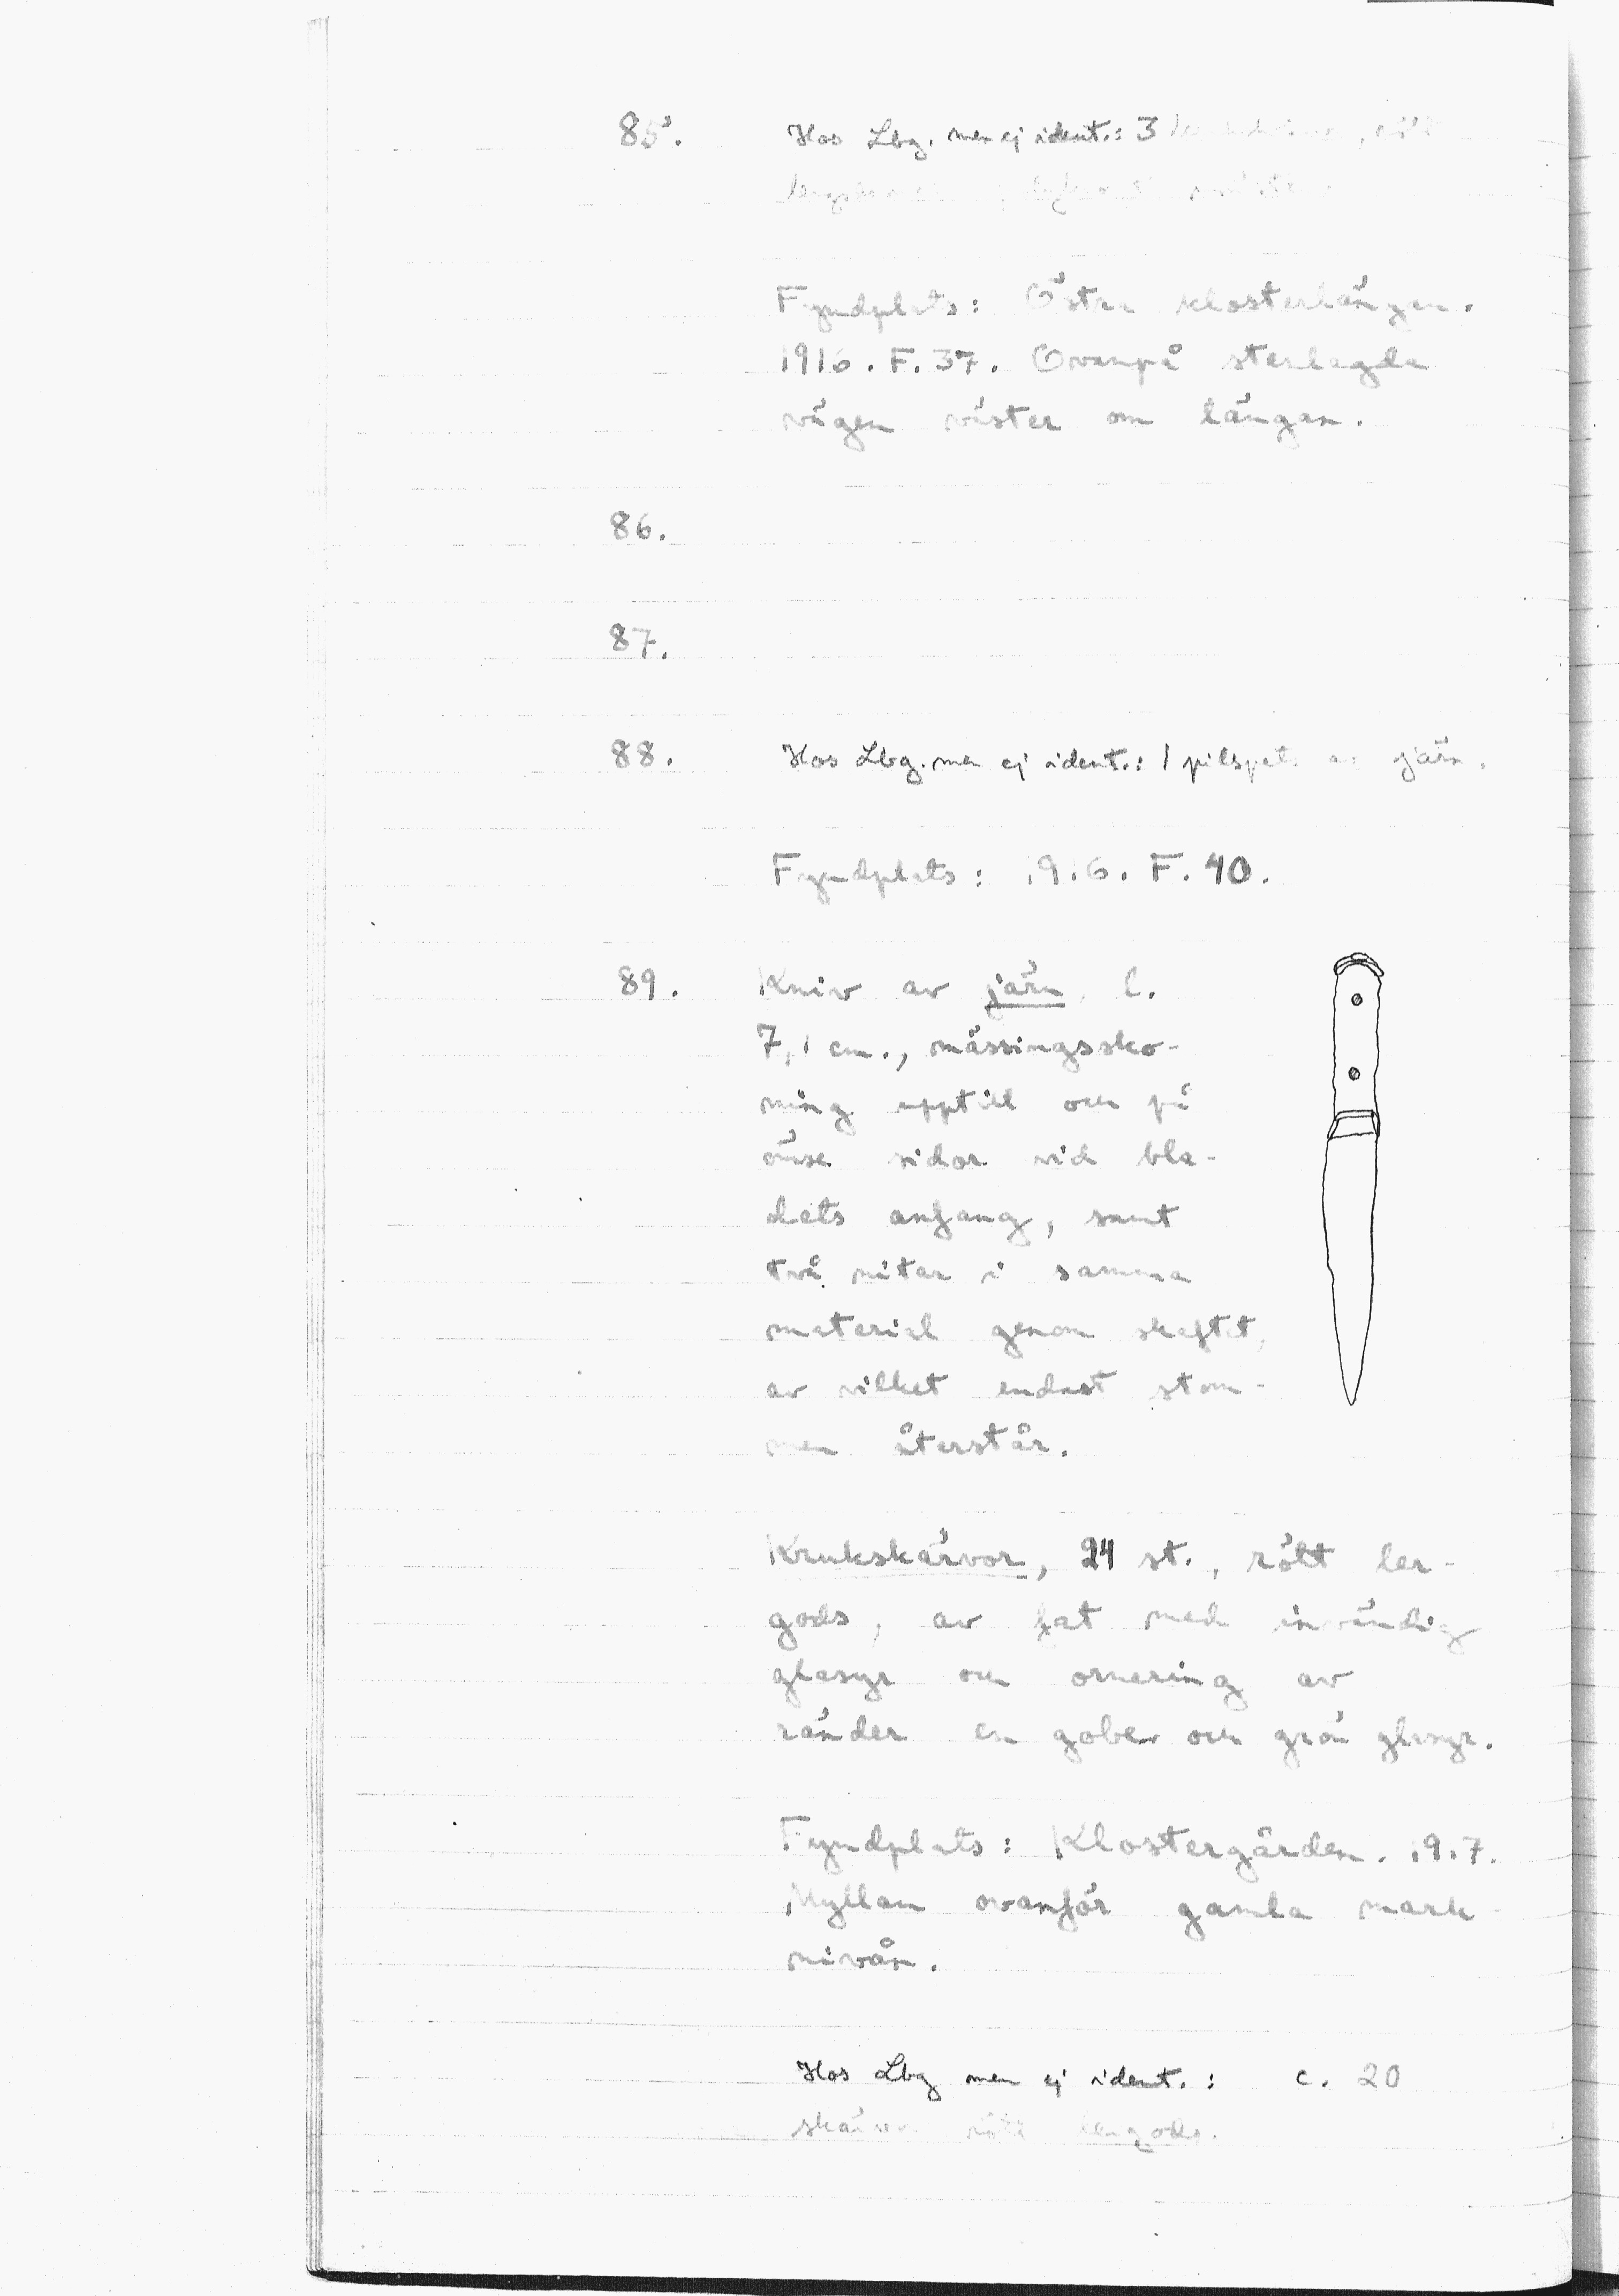 85. Hos Lbg. men ej ident.: 3 , rött
Fyndplats: Östra klosterlängan.
1916. F. 37. Ovanpå stenlagda
vägen väster om längan.
86.
87.
88. Hos Lbg. men ej ident.: 1 pilspets av järn.
Fyndplats: 1916. F. 40.
89. Kniv av järn, l.
7,1 cm., mässingssko-
ning upptill och på
ömse sidor vid bla-
dets anfang, samt
två nitar i samma
material genom skaftet,
av vilket endast stom-
men återstår.
Krukskärvor, 24 st., rött ler-
gods, av fat med invändig
glasyr och ornering av
ränder en gobe och grön glasyr.
Fyndplats: Klostergården. 1917.
Myllan ovanför gamla mark-
nivån.
Hos Lbg men ej ident.: c. 20
skärvor rött lergods.